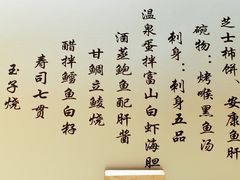 芝士柿饼、安康鱼肝
碗物：烤喉黑鱼汤
刺身：刺身五品
温泉蛋拌富山白虾海胆
酒蒸鲍鱼配肝酱
甘鲷立鳞烧
醋拌鳕鱼白籽
寿司七贯
玉子烧